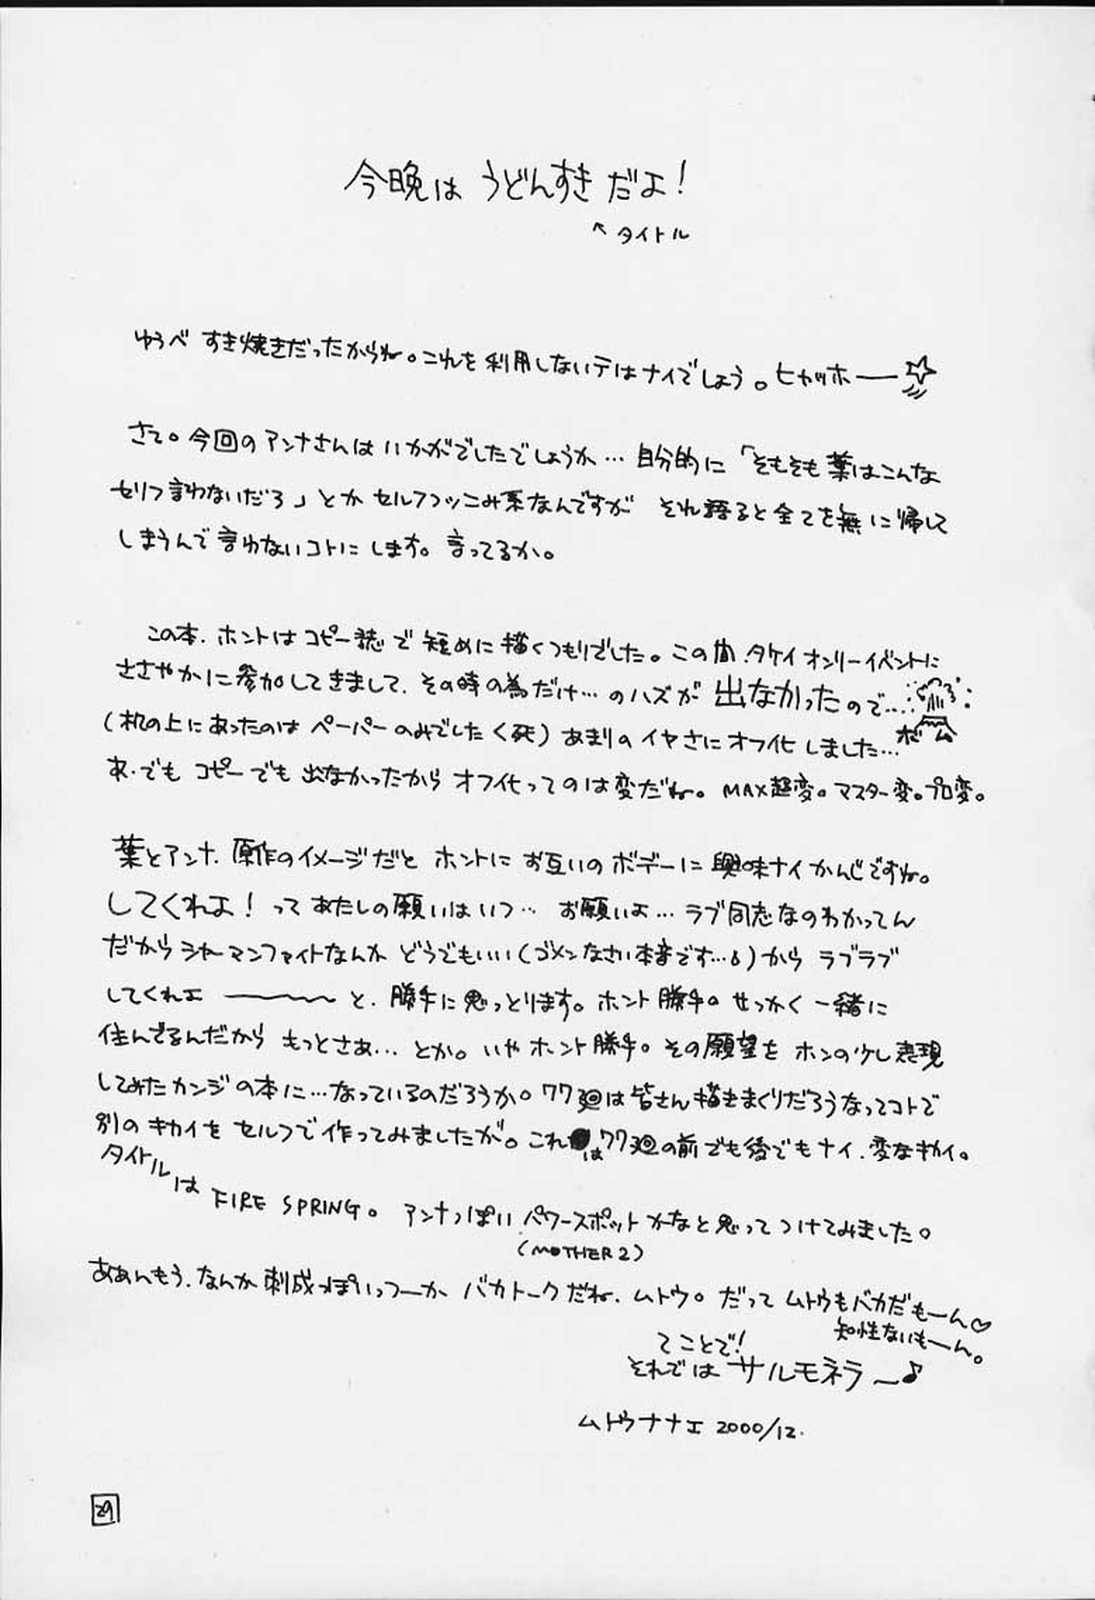 今晩は うどんすき だよ！
↖タイトル
ゆうべ すき焼きだったからね。これを利用しないテはナイでしょう。ヒャッホー☆
さて。今回のアンナさんはいかがでしたでしょうか… 自分的に「そもそも葉はこんな
セリフ言わないだろ」とか セルフツッこみ系なんですが それ語ると全てを無に帰して
しまうんで言わないコトにします。言ってるか。
この本、ホントはコピー誌で短めに描くつもりでした。この前、タケイオンリーイベントに
ささやかに参加してきまして、その時の為だけ…のハズが 出なかったので…
ボム
(机の上にあったのは ペーパーのみでしたく死) あまりのイヤさにオフ化しました…
あ、でも コピーでも出なかったから オフ化ってのは変だね。MAX超変。マスター変。プロ変。
葉とアンナ、原作のイメージだと ホントにお互いのボデーに興味ナイかんじですね。
してくれよ！って あたしの願いはいつ… お願いよ… ラブ同志なのわかってん
だからシャーマンファイトなんか どうでもいい(ゴメンなさい本音です…)から ラブラブ
してくれェ〜〜〜と、勝手に思っとります。ホント勝手。せっかく一緒に
住んでるんだから もっとさあ… とか。いやホント勝手。その願望を ホンの少し表現
してみたカンジの本に…なっているのだろうか。77廻は皆さん描きまくりだろうなってコトで
別のキカイを セルフで作ってみましたが。これは77廻の前でも後でもナイ、変なキカイ。
タイトルは FIRE SPRING。 アンナっぽい パワースポットかなと思ってつけてみました。
(MOTHER2)
ああんもう、なんか刹那っぽいっつーか バカトークだね、ムトウ。だって ムトウもバカだもーん♡
知性ないもーん。
てことで！
それでは サルモネラ〜♪
ムトウナナエ 2000/12.
29